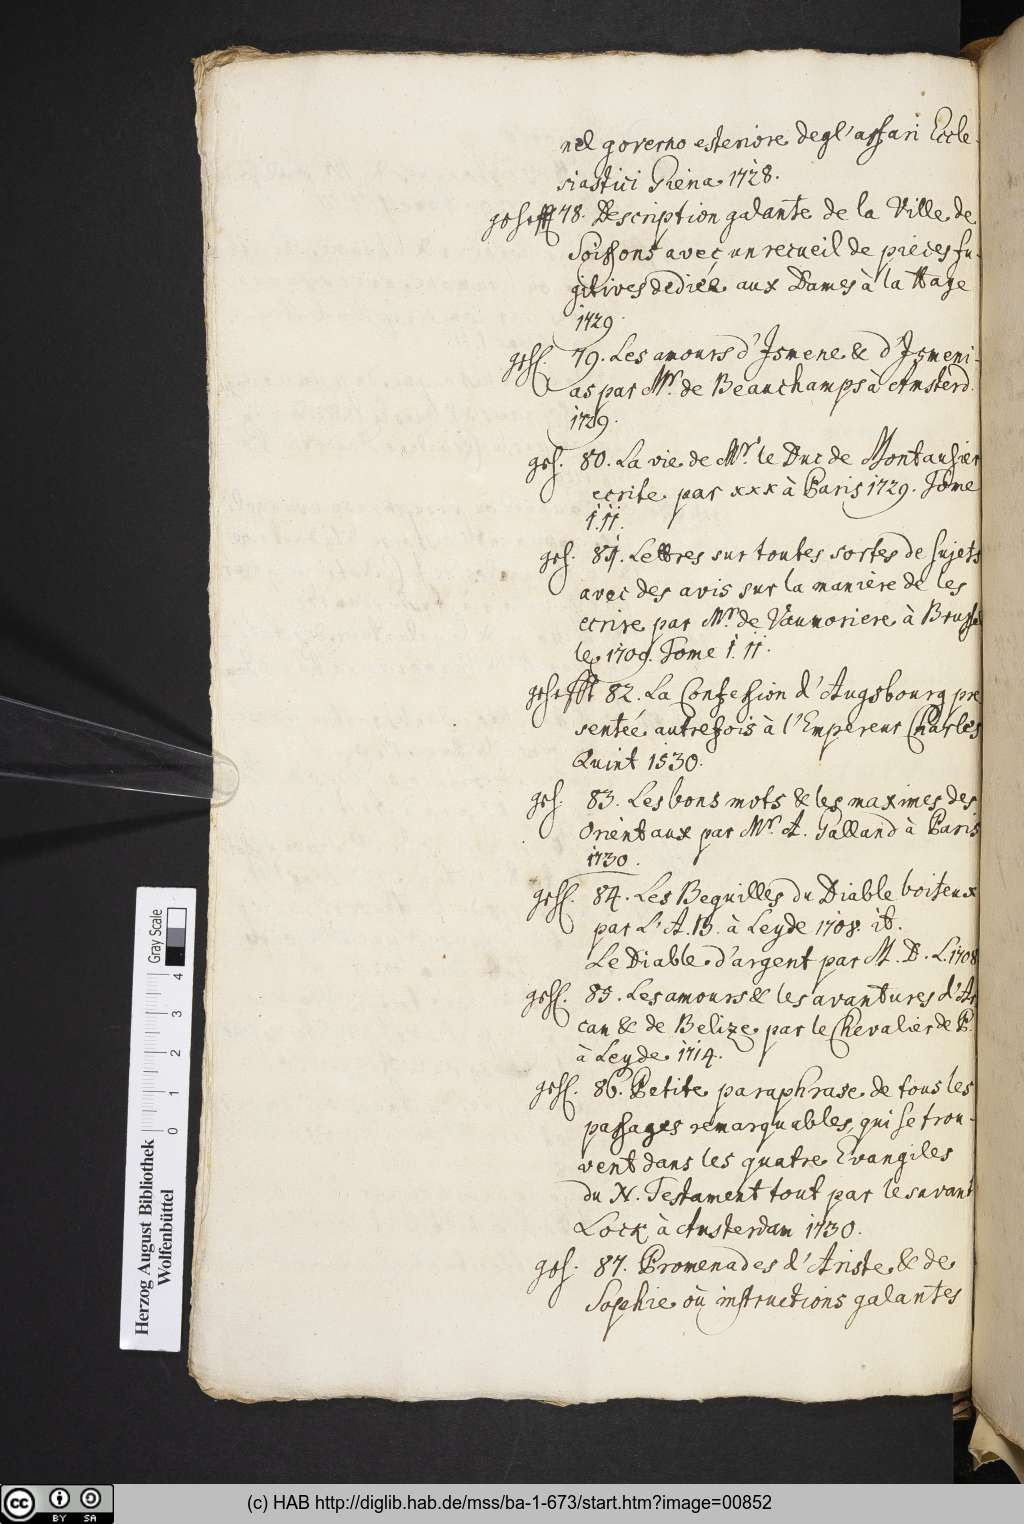 nel governo esteriore degl'affari Eccle-
siastici Piena 1728.
gehefft 78. Description galante de la Ville de
Soissons avec un recueil de pieces fu-
gitives dediée aux Dames à la Haye
1729.
geh. 79. Les amours d'Ismene & d'Ismeni-
as par Mr. de Beauchamps à Amsterd.
1729.
geh. 80. La vie de Mr. le Duc de Montausier
ecrite par xxx à Paris 1729. Tome
I. II.
geh. 81. Lettres sur toutes sortes de sujets
avec des avis sur la manière de les
ecrire par Mr. de Vaumoriere à Brusse
le 1709. Tome I. II.
gehefft 82. La Confession d'Augsbourg pre
sentée autrefois à l'Empereur Charles
Quint 1530.
geh. 83. Les bons mots & les maximes des
Orientaux par Mr. A. Galland à Paris
1730.
geh. 84. Les Bequilles du Diable boiteux
par L'A. B. à Leyde 1708. it.
Le Diable d'argent par M. D. L. 1708
geh. 85. Les amours & les avantures d'Ar
can & de Belize par le Chevalier de P.
à Leyde 1714.
geh. 86. Petite paraphrase de tous les
passages remarquables, qui se trou-
vent dans les quatre Evangiles
du N. Testament tout par le savant
Lock à Amsterdam 1730.
geh. 87. Promenades d'Ariste & de
Sophie où instructions galantes
Herzog August Bibliothek
Wolfenbüttel
0 1 2 3 4
Gray Scale
cc BY SA
(c) HAB http://diglib.hab.de/mss/ba-1-673/start.htm?image=00852